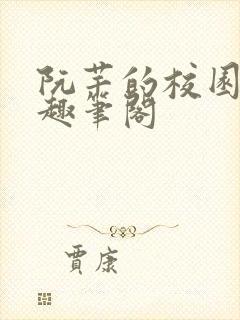 阮芏的校园
趣笔阁
贾康